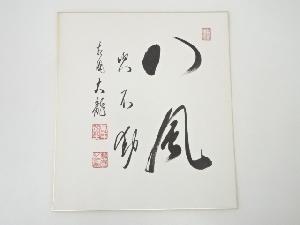 八風
吹不動
大龍